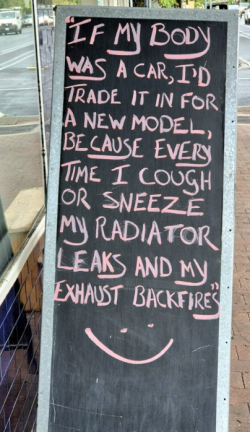 "IF MY BODY
WAS A CAR, I'D
TRADE IT IN FOR
A NEW MODEL,
BECAUSE EVERY
TIME I COUGH
OR SNEEZE
MY RADIATOR
LEAKS AND MY
EXHAUST BACKFIRES"